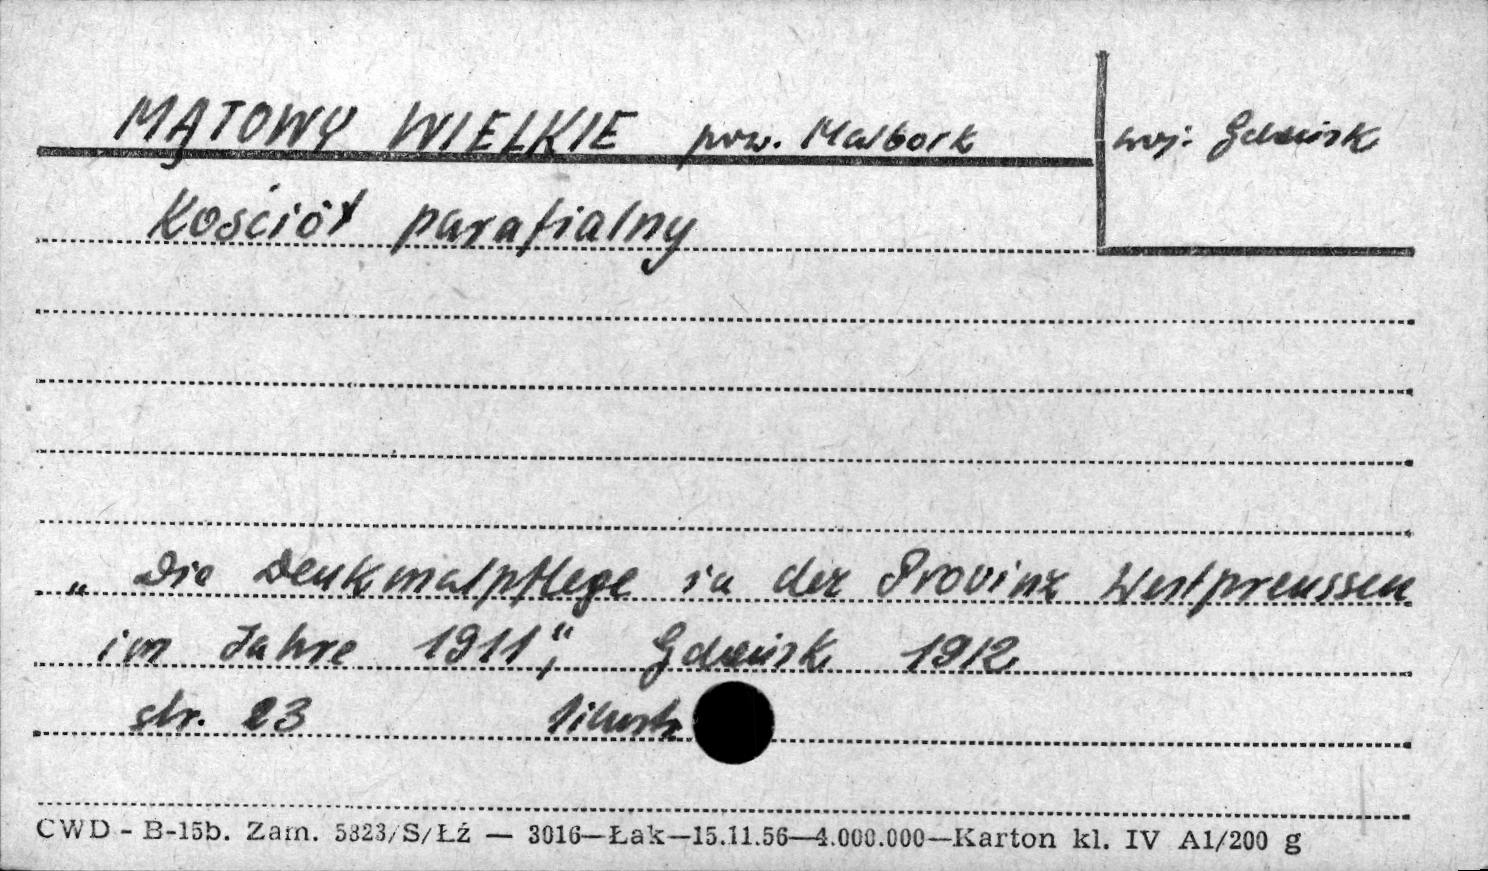 MĄTOWY WIELKIE pow. Malbork woj. Gdańsk
Kościół parafialny
„Die Denkmalpflege in der Provinz Westpreussen
im Jahre 1911", Gdańsk 1912
str. 23
CWD - B-15b. Zam. 5823/S/Łź — 3016—Łak—15.11.56—4.000.000—Karton kl. IV A1/200 g